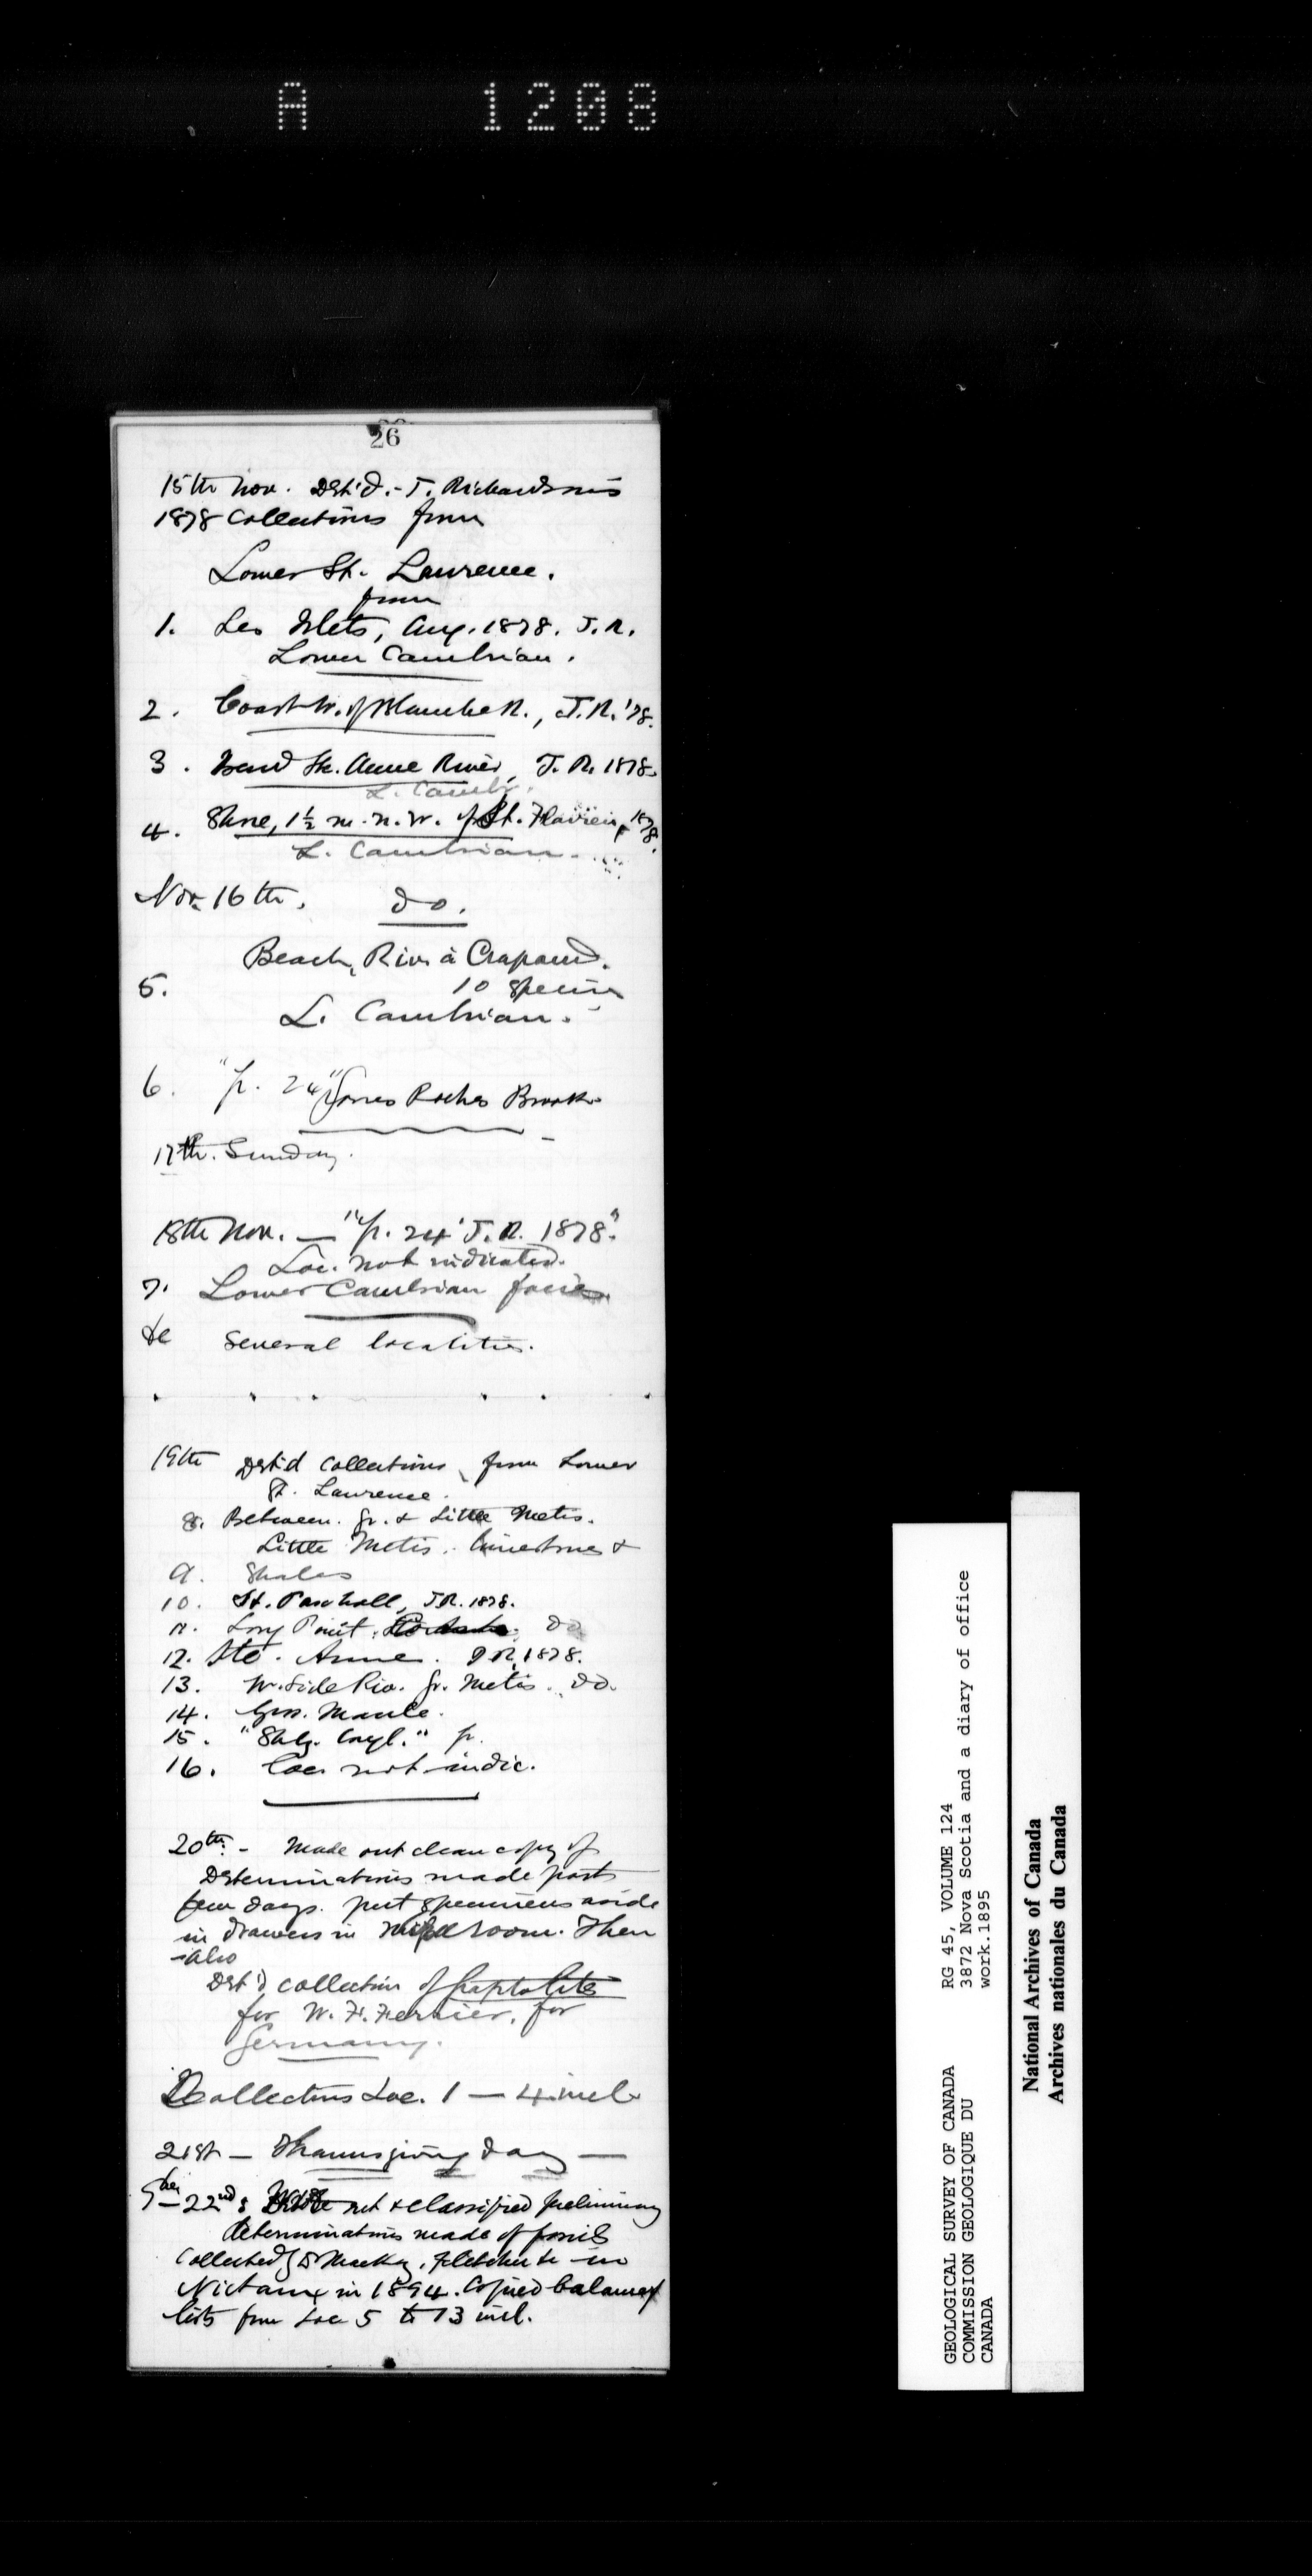 A 1208
26
15th Nov. Det'd.- J. Richardson's
1878 Collections from
Lower St. Lawrence.
from
1. Les Islets, Aug. 1878. J.R.
Lower Cambrian.
2. Coast W. of Blanche R., J.R. '78.
3. Ste. Anne River, J.R. 1878.
L. Cambr.
4. Shore, 1½ m. N.W. of St. Flavien, 1878.
L. Cambrian.
Nov. 16th. do.
Beach, Riv. à Crapaud.
5. 10 species
L. Cambrian.
6. "p. 24" Roches Brook
17th. Sunday.
18th Nov. — "p. 24 J.R. 1878."
Loc. not indicated.
7. Lower Cambrian facies
&c several localities.
19th Det'd collections from Lower
St. Lawrence.
8. Between Gr. & Little Metis.
Little Metis. limestones &
9. Shales
10. St. Paschall, J.R. 1878.
11. Long Point, do
12. Ste. Anne. J.R. 1878.
13. W. Side Riv. Gr. Metis. do.
14. Gros. Maule.
15. "Shlg. Congl." p.
16. Loc. not indic.
20th. - Made out clean copy of
Determinations made past
few days. put specimens aside
in drawers in room. Then
also
Det'd collection of Graptolites
for W. F. Ferrier, for
Germany.
Collections Loc. 1 — 4 incl.
21st — Thanksgiving day —
22nd: out & classified preliminary
determinations made of fossils
collected by Dr MacKay, Fletcher &c in
Nictaux in 1894. Copied balance of
lists from Loc 5 to 13 incl.
GEOLOGICAL SURVEY OF CANADA
COMMISSION GEOLOGIQUE DU
CANADA
RG 45, VOLUME 124
3872 Nova Scotia and a diary of office
work.1895
National Archives of Canada
Archives nationales du Canada